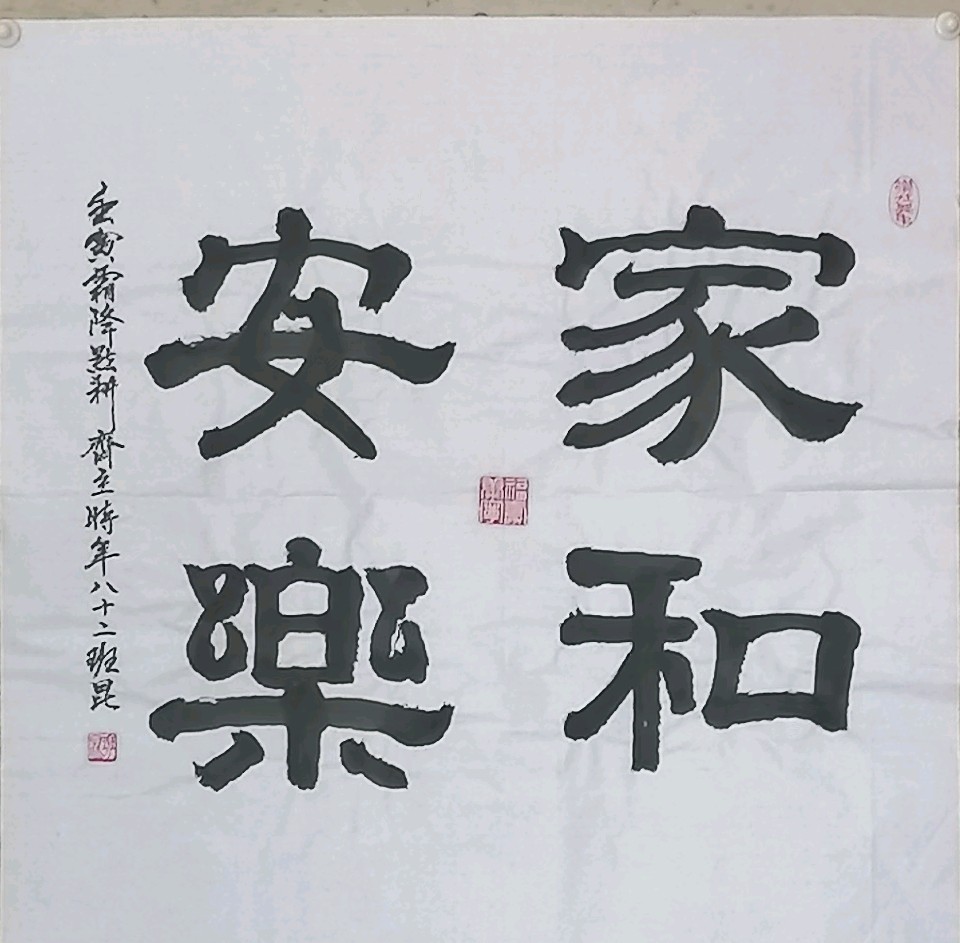 家和
安樂
壬寅霜降點耕齊主時年八十二班昆